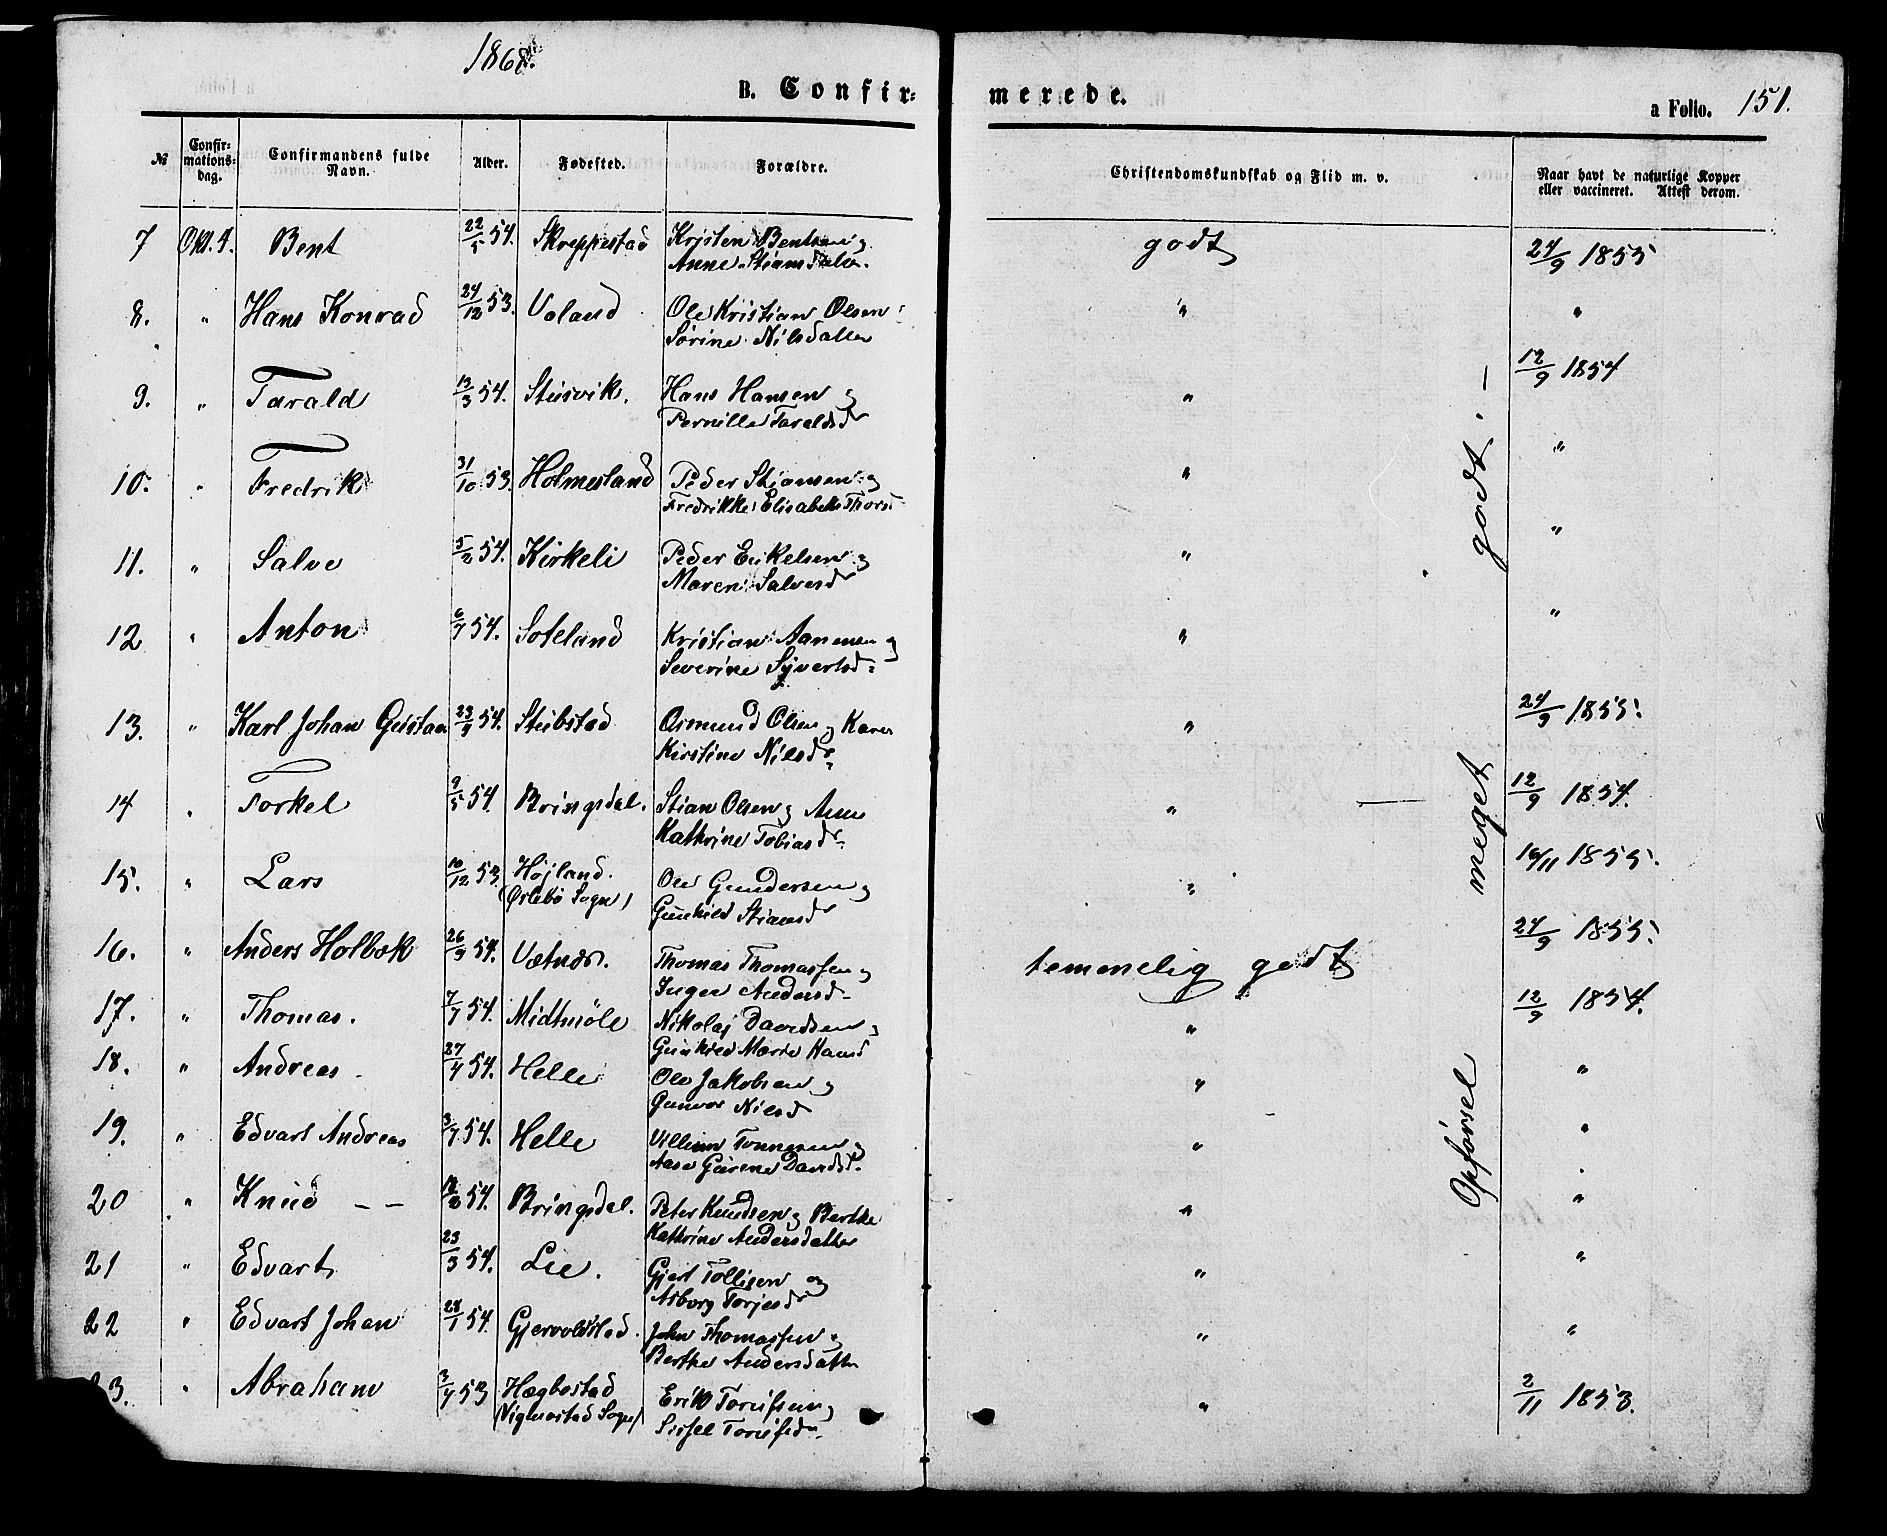 1868.
B. Confir=
merede.
a Folio. 151.
№ Confir=mations=dag. Confirmandens fulde Navn. Alder. Fødested. Forældre. Christendomskundskab og Flid m. v. Naar havt de naturlige Kopper eller vaccineret. Attest derom.
7 Okt. 4. Bent 22/5 54. Skreppestad Kristen Bentsen og godt 24/9 1855
Anne Stiansdatter.
8. " Hans Konrad 24/12 53. Valand Ole Kristian Olsen " "
Sørine Nilsdatter
9. " Tarald 13/3 54. Stusvik. Hans Hansen og " 12/9 1854
Pernille Taraldsd
10. " Fredrik 31/10 53. Holmesland Peder Stiansen og " "
Fredrikke Elisabeth Thorsd
11. " Salve 5/2 54. Kirkeli Peder Eikelsen og " "
Maren Salvesd
12 " Anton 6/7 54. Soteland Kristian Aanensen og " "
Severine Syvertsd=
13. " Karl Johan Gustav 23/9 54. Stubstad Osmund Olsen og Karen " 24/9 1855.
Kirstine Nilsdr
14 " Torkel 9/5 54. Bringsdal. Stian Olsen og Anne " 12/9 1854.
Kathrine Tobiasdr
15. " Lars 10/12 53. Højland. Ole Gundersen og " 16/11 1855.
(Øslebø Sogn) Gunhild Stiansd
16. " Anders Holbæk 26/9 54. Vætnæs. Thomas Thomassen og temmelig godt 24/9 1855.
Inger Andersd
17. " Thomas. 7/7 54. Midtbøle Nikolaj Davidsen og " 12/9 1854.
Gunhild Marie Hansd
18. " Andreas 27/4 54. Helle Ole Jakobsen og " "
Gunvor Nilsd
19. " Edvart Andreas 3/7 54. Helle Villum Tønnesen og " "
Aase Gurine Davidsd.
20 " Knud – – 54. Bringsdal. Peter Knudsen og Berthe " "
Kathrine Andersdatter
21 " Edvart 23/3 54. Lie. Gjert Tollisen og " "
Asborg Torjesd
22 " Edvart Johan 28/1 54. Gjervoldstad. John Thomassen og " "
Berthe Andersdatter
23. " Abraham 3/7 53 Hægbostad Erik Torjussen og " 2/11 1853.
(Vigmostad Sogn) Sissel Torjusd.
Opførsel meget godt. –